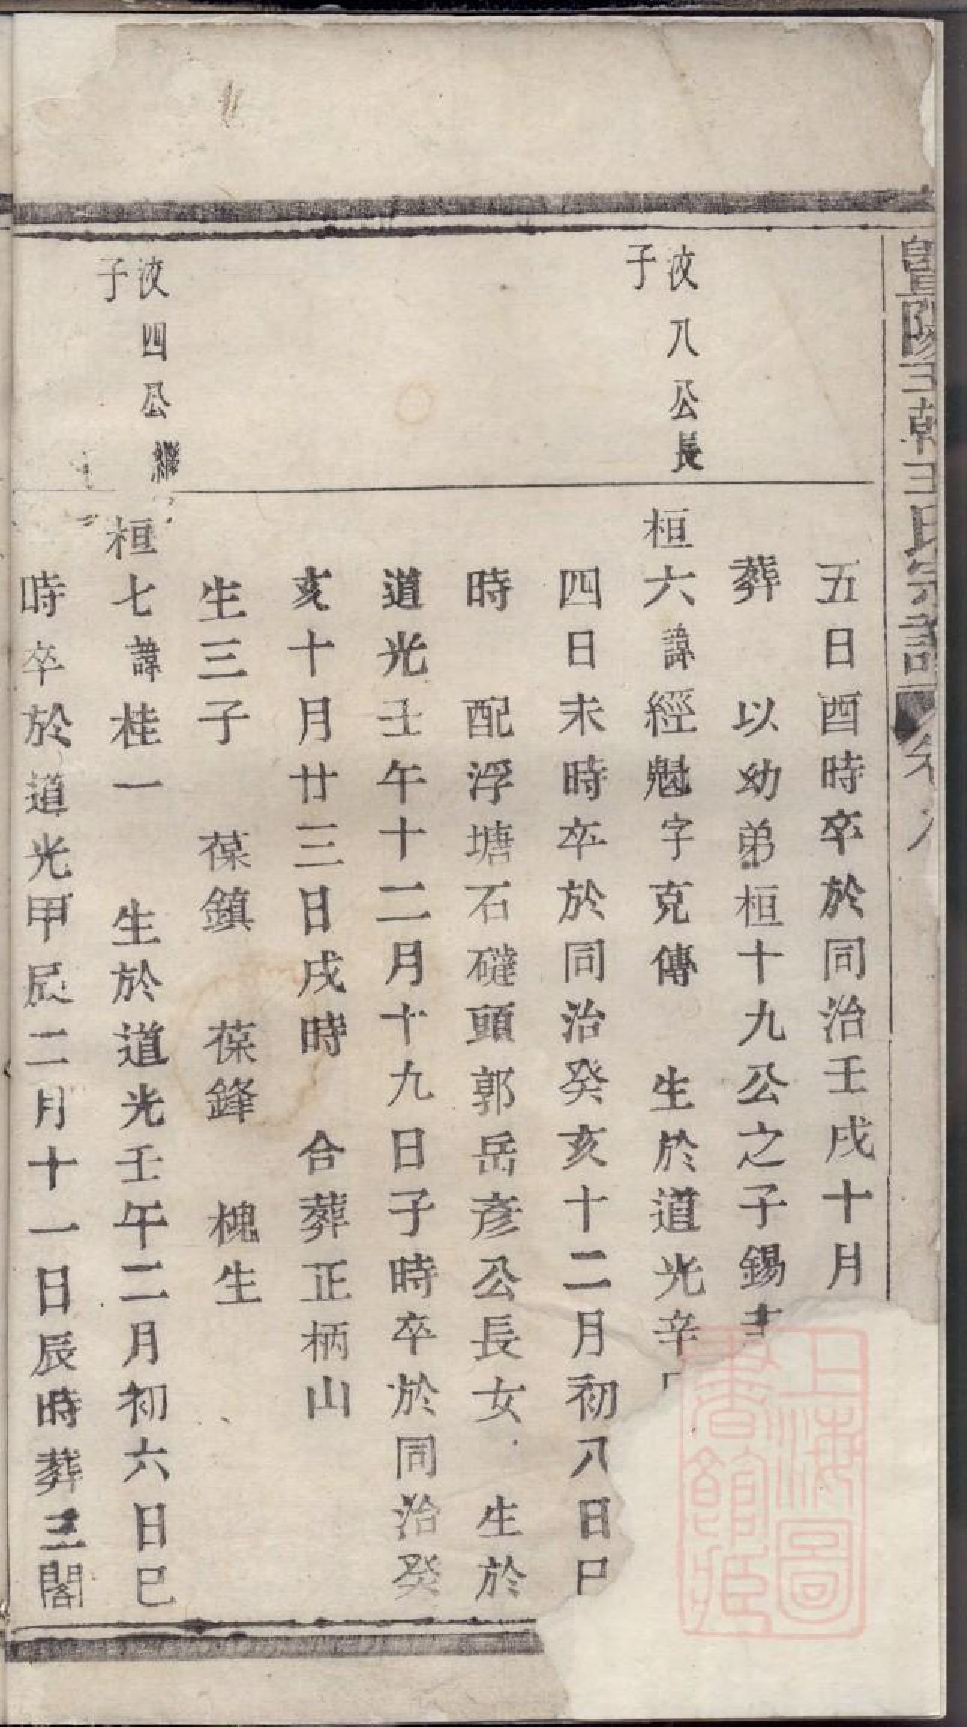 暨陽王韓王氏宗譜
五日酉時卒於同治壬戌十月
葬　以幼弟桓十九公之子錫
波八公長
子
桓六諱經魁字克傳　生於道光辛
四日未時卒於同治癸亥十二月初八日
時　配浮塘石磓頭郭岳彥公長女　生於
道光壬午十二月十九日子時卒於同治癸
亥十月廿三日戌時　合葬正柄山
生三子　葆鎮　葆鋒　槐生
波四公繼
子
桓七諱桂一　生於道光壬午二月初六日巳
時卒於道光甲辰二月十一日辰時葬三閣
上海圖
書館藏